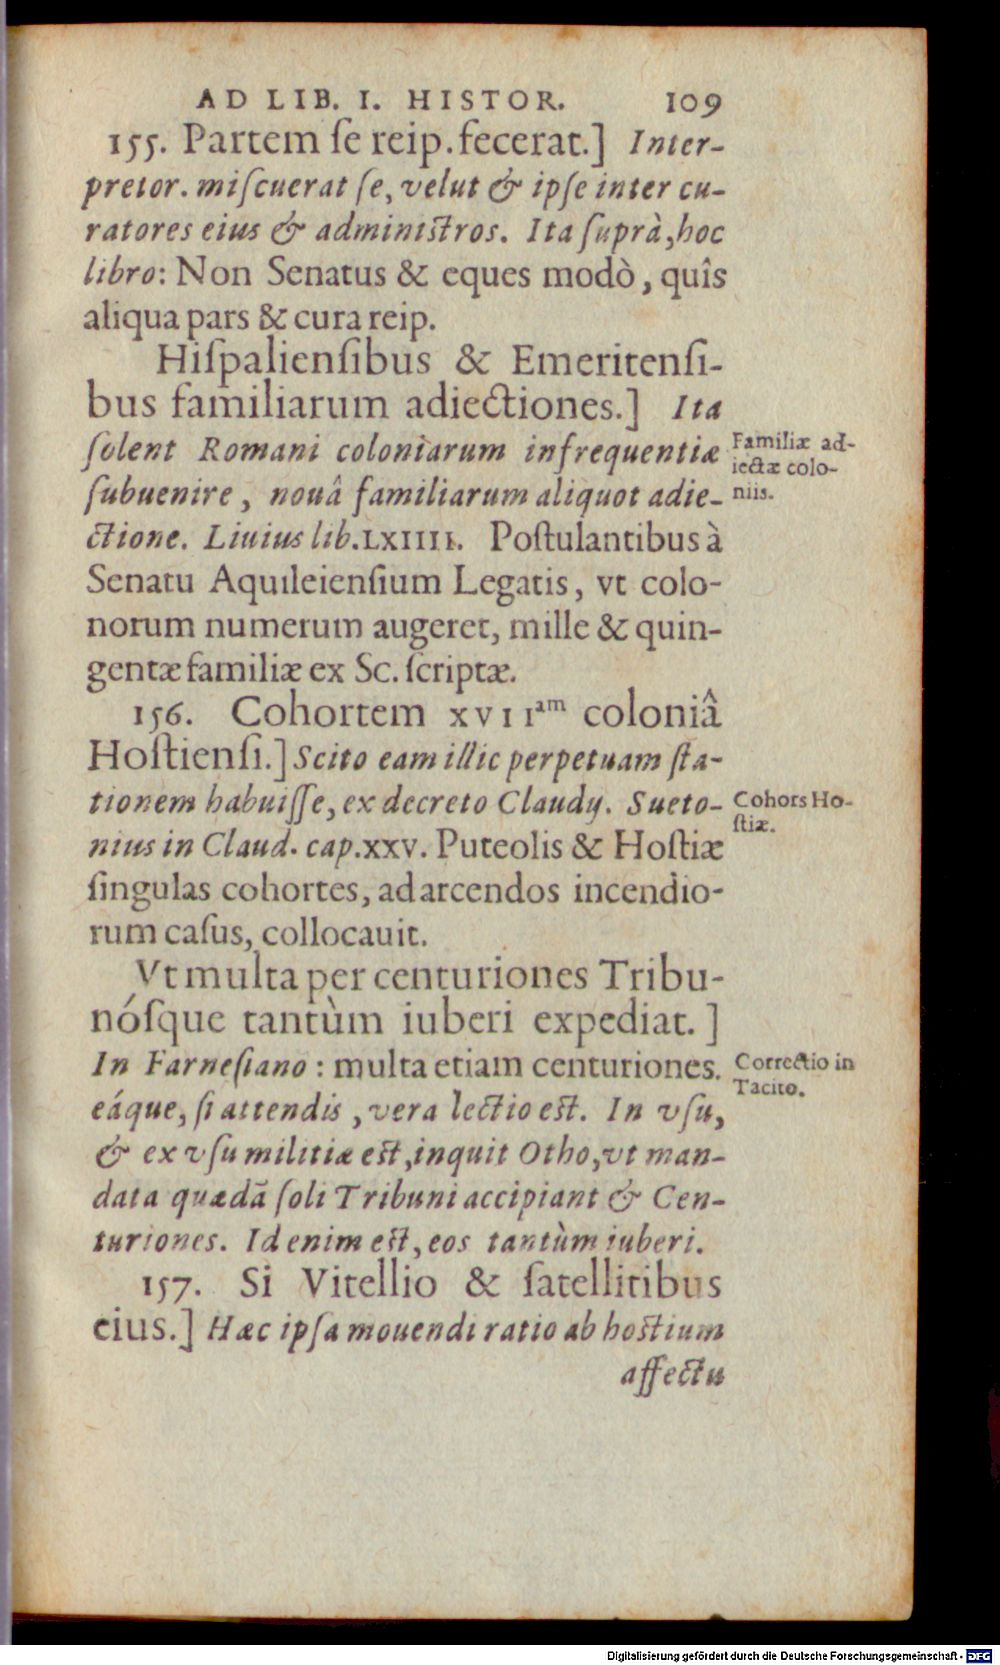 AD LIB. I. HISTOR. 109
155. Partem ſe reip. fecerat.] Inter-
pretor. miſcuerat ſe, velut & ipſe inter cu-
ratores eius & adminiſtros. Ita ſuprà, hoc
libro: Non Senatus & eques modò, quîs
aliqua pars & cura reip.
Hiſpalienſibus & Emeritenſi-
bus familiarum adiectiones.] Ita
ſolent Romani coloniarum infrequentiæ
ſubuenire, nouâ familiarum aliquot adie-
ctione. Liuius lib. LXIIII. Poſtulantibus à
Senatu Aquileienſium Legatis, vt colo-
norum numerum augeret, mille & quin-
gentæ familiæ ex Sc. ſcriptæ.
Familiæ ad-
iectæ colo-
niis.
156. Cohortem XVIIam coloniâ
Hoſtienſi.] Scito eam illic perpetuam ſta-
tionem habuiſſe, ex decreto Claudij. Sueto-
nius in Claud. cap. XXV. Puteolis & Hoſtiæ
ſingulas cohortes, ad arcendos incendio-
rum caſus, collocauit.
Cohors Ho-
ſtiæ.
Vt multa per centuriones Tribu-
nóſque tantùm iuberi expediat.]
In Farneſiano: multa etiam centuriones.
eáque, ſi attendis, vera lectio eſt. In vſu,
& ex vſu militiæ eſt, inquit Otho, vt man-
data quædã ſoli Tribuni accipiant & Cen-
turiones. Id enim eſt, eos tantùm iuberi.
Correctio in
Tacito.
157. Si Vitellio & ſatellitibus
eius.] Hæc ipſa mouendi ratio ab hoſtium
affectu
Digitalisierung gefördert durch die Deutsche Forschungsgemeinschaft - DFG